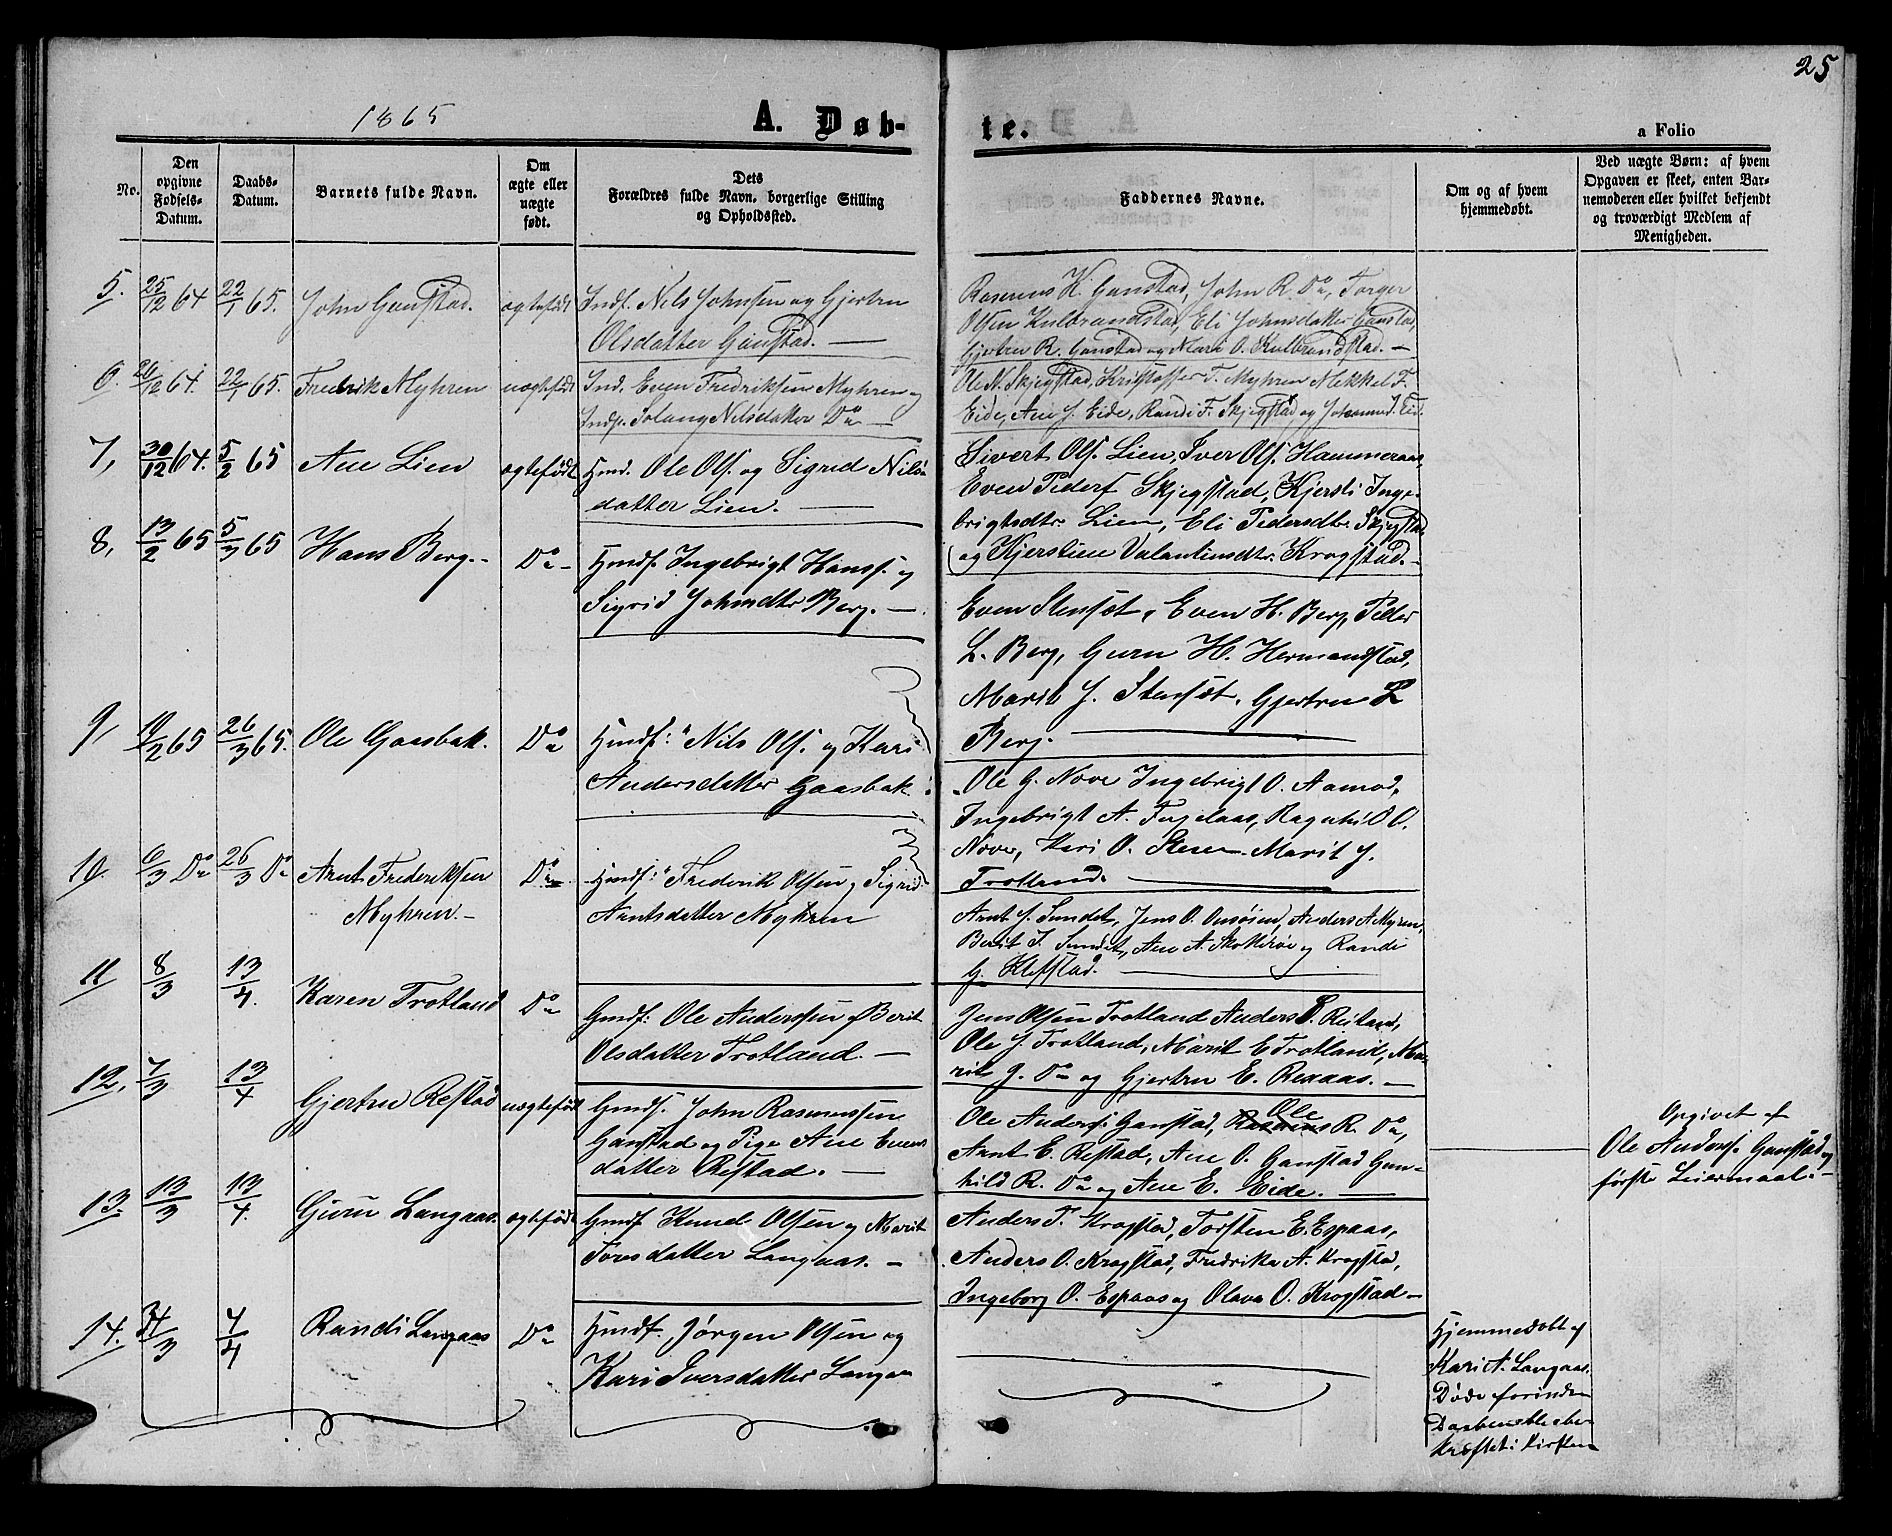 25
1865
A. Døb-
te.
a Folio
No.
Den
opgivne
Fødsels-
Datum.
Daabs-
Datum.
Barnets fulde Navn.
Om
ægte eller
uægte
født.
Dets
Forældres fulde Navn, borgerlige Stilling
og Opholdssted.
Faddernes Navne.
Om og af hvem
hjemmedøbt.
Ved uægte Børn: af hvem
Opgaven er skeet, enten Bar-
nemoderen eller hvilket bekjendt
og troværdigt Medlem af
Menigheden.
5. 25/12 64 22/1 65. John Gaustad. ægtefødt Indf. Nils Johnsen og Gjertru
Olsdatter Gaustad. —
Rasmus K. Gaustad, John R. Do, Torger
Olsen Kulbrandstad, Eli Johnsdatter Gaustad,
Gjertru R. Gaustad og Marit O. Kulbrandstad. —
6. 26/12 64. 22/1 65. Fredrik Myhren uægtefødt Ind. Even Fredriksen Myhren og
Indp. Solaug Nilsdatter Do —
Ole N. Skjegstad, Kristoffer T. Myhren Mekkel F.
Eide, Ane J. Eide, Randi F. Skjegstad og Johanna J. Eid.
7, 30/12 64. 5/2 65 Ane Lien ægtefødt Hmd. Ole Ols. og Sigrid Nils-
datter Lien. —
Sivert Ols. Lien, Iver Ols. Hammeraas,
Even Peders. Skjegstad, Kjersti Inge-
brigtsdtr. Lien, Eli Pedersdtr. Skjegstad
og Kjerstine Valentinsdtr. Krogstad. —
8, 13/2 65 5/3 65 Hans Berg. - Do - Hmdf. Ingebrigt Hanss. og
Sigrid Johnsdtr Berg. —
Even Stensæt, Even H. Berg, Peder
L. Berg, Guru H. Hermanstad,
Marit J. Stensæt, Gjertru L
Berg. —
9, 19/2 65 26/3 65. Ole Gaasbak. Do Hmdf: Nils Ols. og Kari
Andersdatter Gaasbak.
Ole G. Nove Ingebrigt O. Aamod,
Ingebrigt A. Fuglaas, Ragnhild O.
Nove, Kari O. Steen. Marit J.
Trotland. —
10. 6/3 Do 26/3 Do Arnt Frederiksen
Myhren. - Do - Hmdf: Frederik Olsen og Sigrid
Arntsdatter Myhren
Arnt J. Sundet, Jens O. Onsøien, Anders A Myren,
Berit J. Sundet, Ane A. Skotteroe og Randi
G. Klefstad. —
11 8/3 13/4. Karen Trotland Do Gmdf: Ole Anderssen og Berit
Olsdatter Trotland. —
Jens Olsen Trotland Anders L. Reitan,
Ole J. Trotland, Marit E Trotland, Ma-
rit J. Do og Gjertru E. Rexaas. —
12. 7/3 13/4 Gjertru Restad uægtefødt Gmdf. John Rasmussen
Gaustad og Pige Ane Evens
datter Restad. —
Ole Anders. Gaustad, Ole R. Do,
Arnt E. Restad, Ane O. Gaustad Gun-
hild R. Do og Ane E. Eide. —
Opgivet af
Ole Anders. Gaustad og
første Leiermaal. -
13. 13/3 13/4. Guru Langaas. ægtefødt Gmdf Knud Olsen og Marit
Toresdatter Langaas. —
Anders T. Krogstad, Torsten E. Espaas,
Anders O. Krogstad, Fredrikke A. Krogstad,
Ingeborg O. Espaas og Olava O. Krogstad —
14. 31/3 4/4 Randi Langaas Do Hmdf Jørgen Olsen og
Kari Iversdatter Langaas
Hjemmedøbt af
Kari A. Langaas.
Døde forinden
Daaben blev be-
kræftet i Kirken